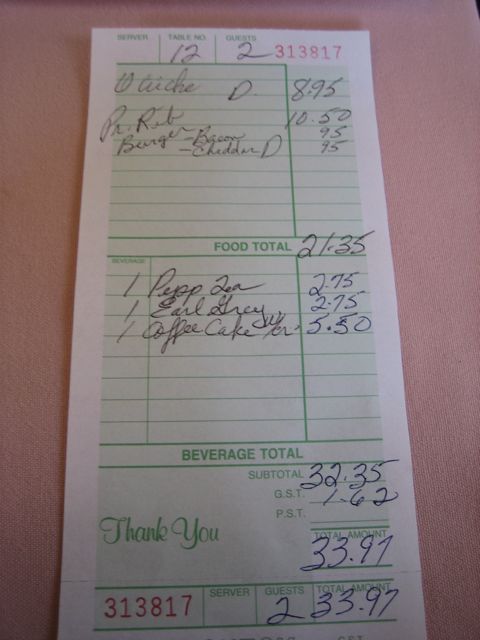 SERVER TABLE NO. GUESTS
12 2 313817
Quiche D. 8.95
Pr. Rib 10.50
Burger - Bacon 95
- Cheddar D 95
FOOD TOTAL 21.35
BEVERAGE
1 Pepp Tea 2.75
1 Earl Grey 2.75
1 Coffee Cake 5.50
BEVERAGE TOTAL
SUBTOTAL 32.35
G.S.T. 1.62
P.S.T.
Thank You
TOTAL AMOUNT
33.97
313817 SERVER GUESTS TOTAL AMOUNT
2 33.97